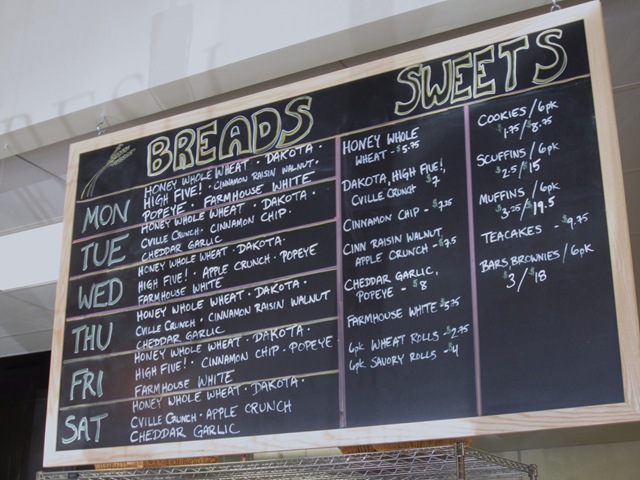 BREADS
MON
HONEY WHOLE WHEAT · DAKOTA ·
HIGH FIVE! · CINNAMON RAISIN WALNUT ·
POPEYE · FARMHOUSE WHITE
TUE
HONEY WHOLE WHEAT · DAKOTA ·
CVILLE CRUNCH · CINNAMON CHIP ·
CHEDDAR GARLIC
WED
HONEY WHOLE WHEAT · DAKOTA ·
HIGH FIVE! · APPLE CRUNCH · POPEYE
FARMHOUSE WHITE
THU
HONEY WHOLE WHEAT · DAKOTA ·
CVILLE CRUNCH · CINNAMON RAISIN WALNUT
CHEDDAR GARLIC
FRI
HONEY WHOLE WHEAT · DAKOTA ·
HIGH FIVE! · CINNAMON CHIP · POPEYE
FARMHOUSE WHITE
SAT
HONEY WHOLE WHEAT · DAKOTA ·
CVILLE CRUNCH · APPLE CRUNCH
CHEDDAR GARLIC
HONEY WHOLE
WHEAT - $5.75
DAKOTA, HIGH FIVE!,
CVILLE CRUNCH $7
CINNAMON CHIP - $7.25
CINN RAISIN WALNUT
APPLE CRUNCH - $7.5
CHEDDAR GARLIC,
POPEYE - $8
FARMHOUSE WHITE - $5.75
6pk WHEAT ROLLS - $2.75
6pk SAVORY ROLLS - $4
SWEETS
COOKIES / 6pk
$1.75 / $8.75
SCUFFINS / 6pk
$2.5 / $15
MUFFINS / 6pk
$3.25 / $19.5
TEACAKES - $9.75
BARS, BROWNIES / 6pk
$3 / $18